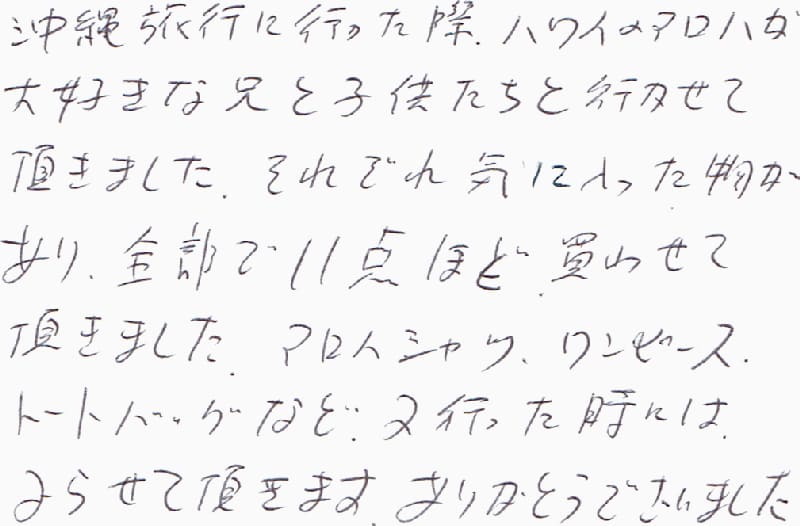 沖縄旅行に行った際、ハワイのアロハが
大好きな兄と子供たちと行かせて
頂きました。それぞれ気に入った物が
あり、全部で11点ほど買わせて
頂きました。アロハシャツ、ワンピース、
トートバッグなど。又行った時には、
よらせて頂きます。ありがとうございました